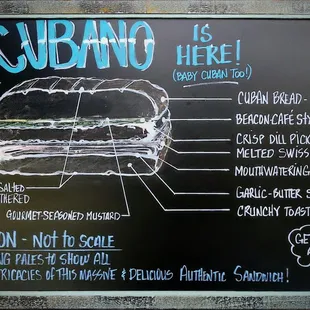 CUBANO
IS
HERE!
(BABY CUBAN TOO!)
CUBAN BREAD-
BEACON-CAFÉ
CRISP DILL
MELTED SWISS
MOUTHWATERING
GARLIC-BUTTER
CRUNCHY
GOURMET-SEASONED MUSTARD
NOT TO SCALE
PALES TO SHOW ALL
OF THIS MASSIVE & DELICIOUS AUTHENTIC SANDWICH!